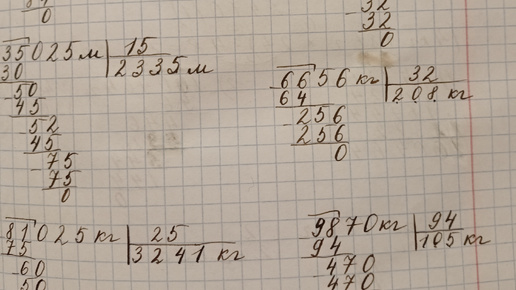 0
32
32
0
35025 м 15
30 2335 м
50
45
52
45
75
75
0
6656 кг 32
64 208 кг
256
256
0
81025 кг 25
75 3241 кг
60
50
9870 кг 94
94 105 кг
470
470